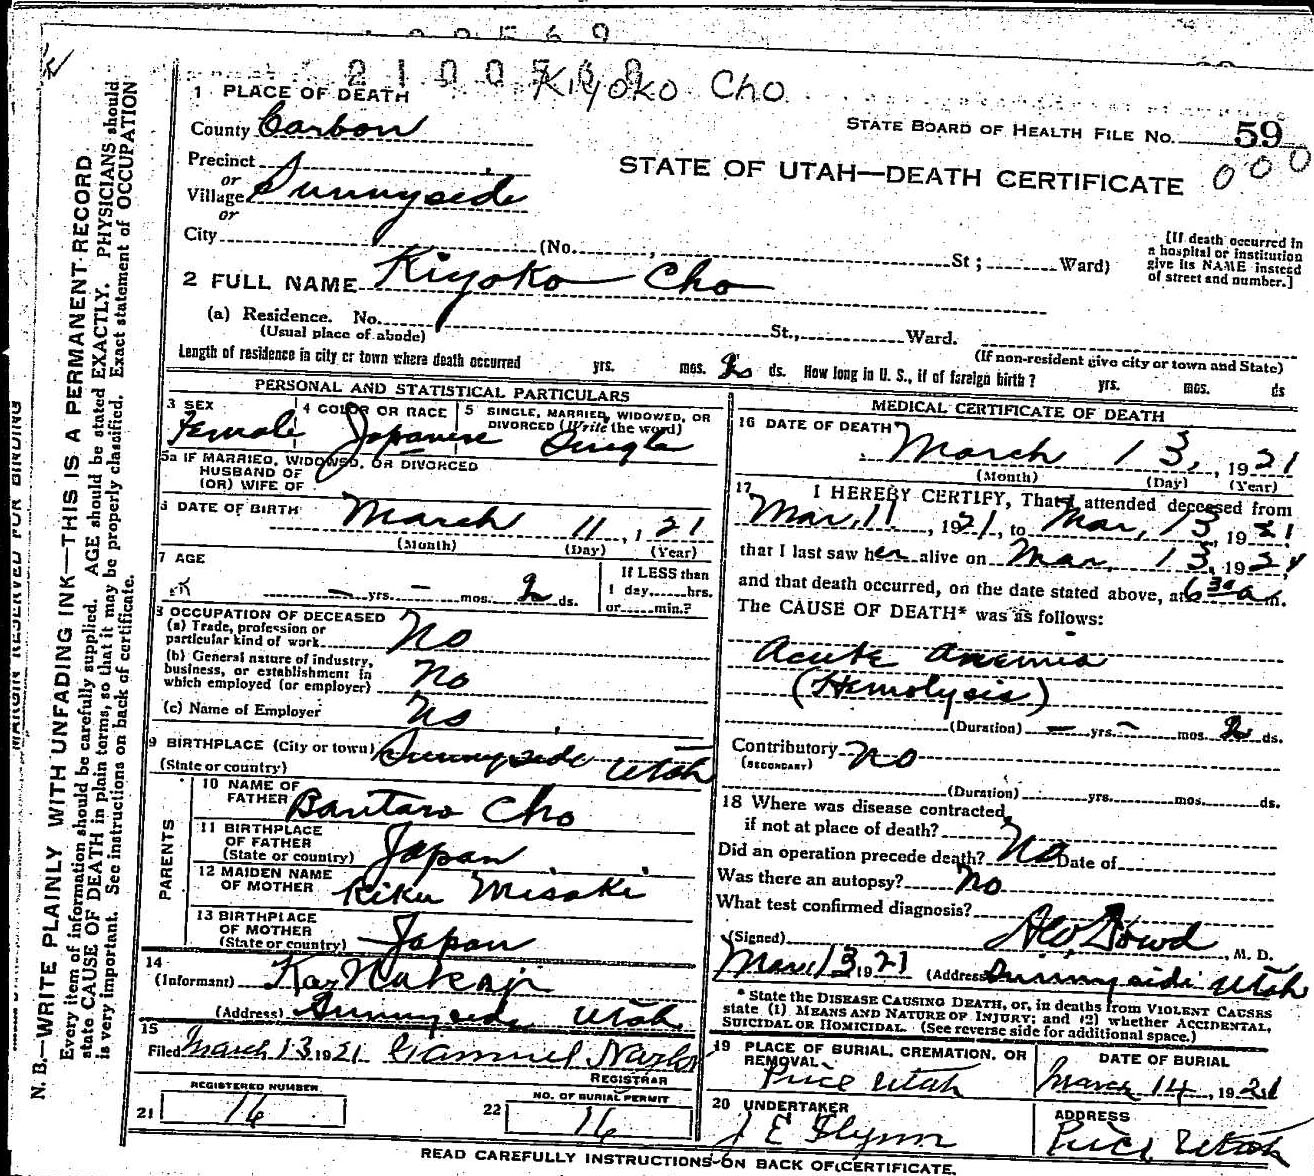 2100568 Kiyoko Cho
1 PLACE OF DEATH
County Carbon
STATE BOARD OF HEALTH FILE No. 59
000
Precinct
or
Village Sunnyside
or
STATE OF UTAH—DEATH CERTIFICATE
City (No. St ; Ward)
[If death occurred in
a hospital or institution
give its NAME instead
of street and number.]
2 FULL NAME Kiyoko Cho
(a) Residence. No. St., Ward.
(Usual place of abode)
(If non-resident give city or town and State)
Length of residence in city or town where death occurred yrs. mos. 2 ds. How long in U. S., if of foreign birth? yrs. mos. ds
PERSONAL AND STATISTICAL PARTICULARS
3 SEX Female
4 COLOR OR RACE Japanese
5 SINGLE, MARRIED, WIDOWED, OR
DIVORCED (Write the word) Single
5a IF MARRIED, WIDOWED, OR DIVORCED
HUSBAND OF
(OR) WIFE OF
6 DATE OF BIRTH March 11, 1 21
(Month) (Day) (Year)
7 AGE
— yrs. — mos. 2 ds.
If LESS than
1 day hrs.
or min.?
8 OCCUPATION OF DECEASED
(a) Trade, profession or
particular kind of work No
(b) General nature of industry,
business, or establishment in
which employed (or employer) No
(c) Name of Employer No
9 BIRTHPLACE (City or town) Sunnyside Utah
(State or country)
PARENTS
10 NAME OF
FATHER Bantaro Cho
11 BIRTHPLACE
OF FATHER
(State or country) Japan
12 MAIDEN NAME
OF MOTHER Kiku Misaki
13 BIRTHPLACE
OF MOTHER
(State or country) Japan
14
(Informant) Kaz Nakaji
(Address) Sunnyside Utah
15
Filed March 13 1921
REGISTRAR
REGISTERED NUMBER
21 16
NO. OF BURIAL PERMIT
22 16
MEDICAL CERTIFICATE OF DEATH
16 DATE OF DEATH March 13, 1921
(Month) (Day) (Year)
17 I HEREBY CERTIFY, That I attended deceased from
Mar, 11, 1921, to Mar, 13 1921
that I last saw her alive on Mar. 13, 1921
and that death occurred, on the date stated above, at 6 30 a m.
The CAUSE OF DEATH* was as follows:
Acute anemia
(Hemolysis)
(Duration) — yrs. — mos. 2 ds.
Contributory No
(SECONDARY)
(Duration) yrs. mos. ds.
18 Where was disease contracted
if not at place of death?
Did an operation precede death? No Date of
Was there an autopsy? No
What test confirmed diagnosis?
(Signed) Dowd, M. D.
Mar 13 1921 (Address) Sunnyside Utah
* State the DISEASE CAUSING DEATH, or, in deaths from VIOLENT CAUSES
state (1) MEANS AND NATURE OF INJURY; and (2) whether ACCIDENTAL,
SUICIDAL OR HOMICIDAL. (See reverse side for additional space.)
19 PLACE OF BURIAL, CREMATION, OR
REMOVAL Price Utah
DATE OF BURIAL
March 14, 1921
20 UNDERTAKER
J E Flynn
ADDRESS
Price Utah
READ CAREFULLY INSTRUCTIONS ON BACK OF CERTIFICATE.
MARGIN RESERVED FOR BINDING
N. B.—WRITE PLAINLY WITH UNFADING INK—THIS IS A PERMANENT RECORD
Every item of information should be carefully supplied. AGE should be stated EXACTLY. PHYSICIANS should
state CAUSE OF DEATH in plain terms, so that it may be properly classified. Exact statement of OCCUPATION
is very important. See instructions on back of certificate.